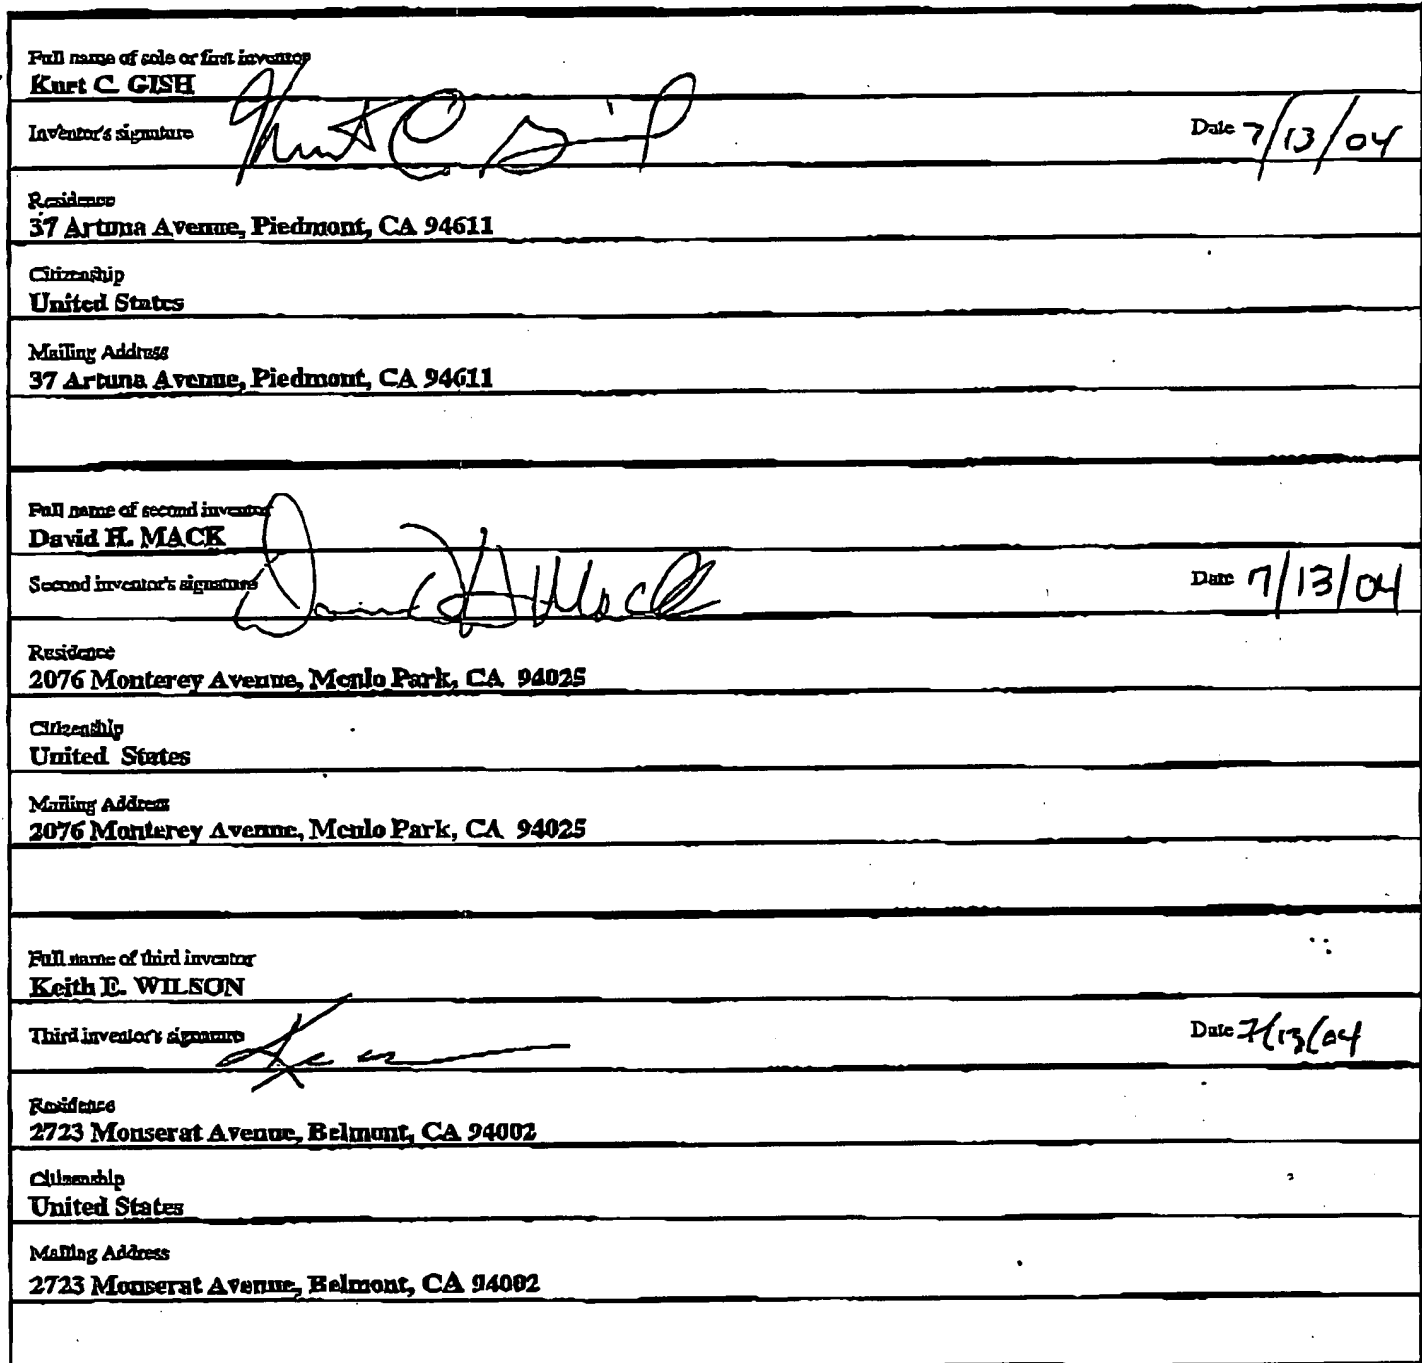 Full name of sole or first inventor
Kurt C. GISH
Inventor's signature Kurt C. Gish Date 7/13/04
Residence
37 Artuna Avenue, Piedmont, CA 94611
Citizenship
United States
Mailing Address
37 Artuna Avenue, Piedmont, CA 94611
Full name of second inventor
David H. MACK
Second inventor's signature David H Mack Date 7/13/04
Residence
2076 Monterey Avenue, Menlo Park, CA 94025
Citizenship
United States
Mailing Address
2076 Monterey Avenue, Menlo Park, CA 94025
Full name of third inventor
Keith E. WILSON
Third inventor's signature Date 7/13/04
Residence
2723 Monserat Avenue, Belmont, CA 94002
Citizenship
United States
Mailing Address
2723 Monserat Avenue, Belmont, CA 94002